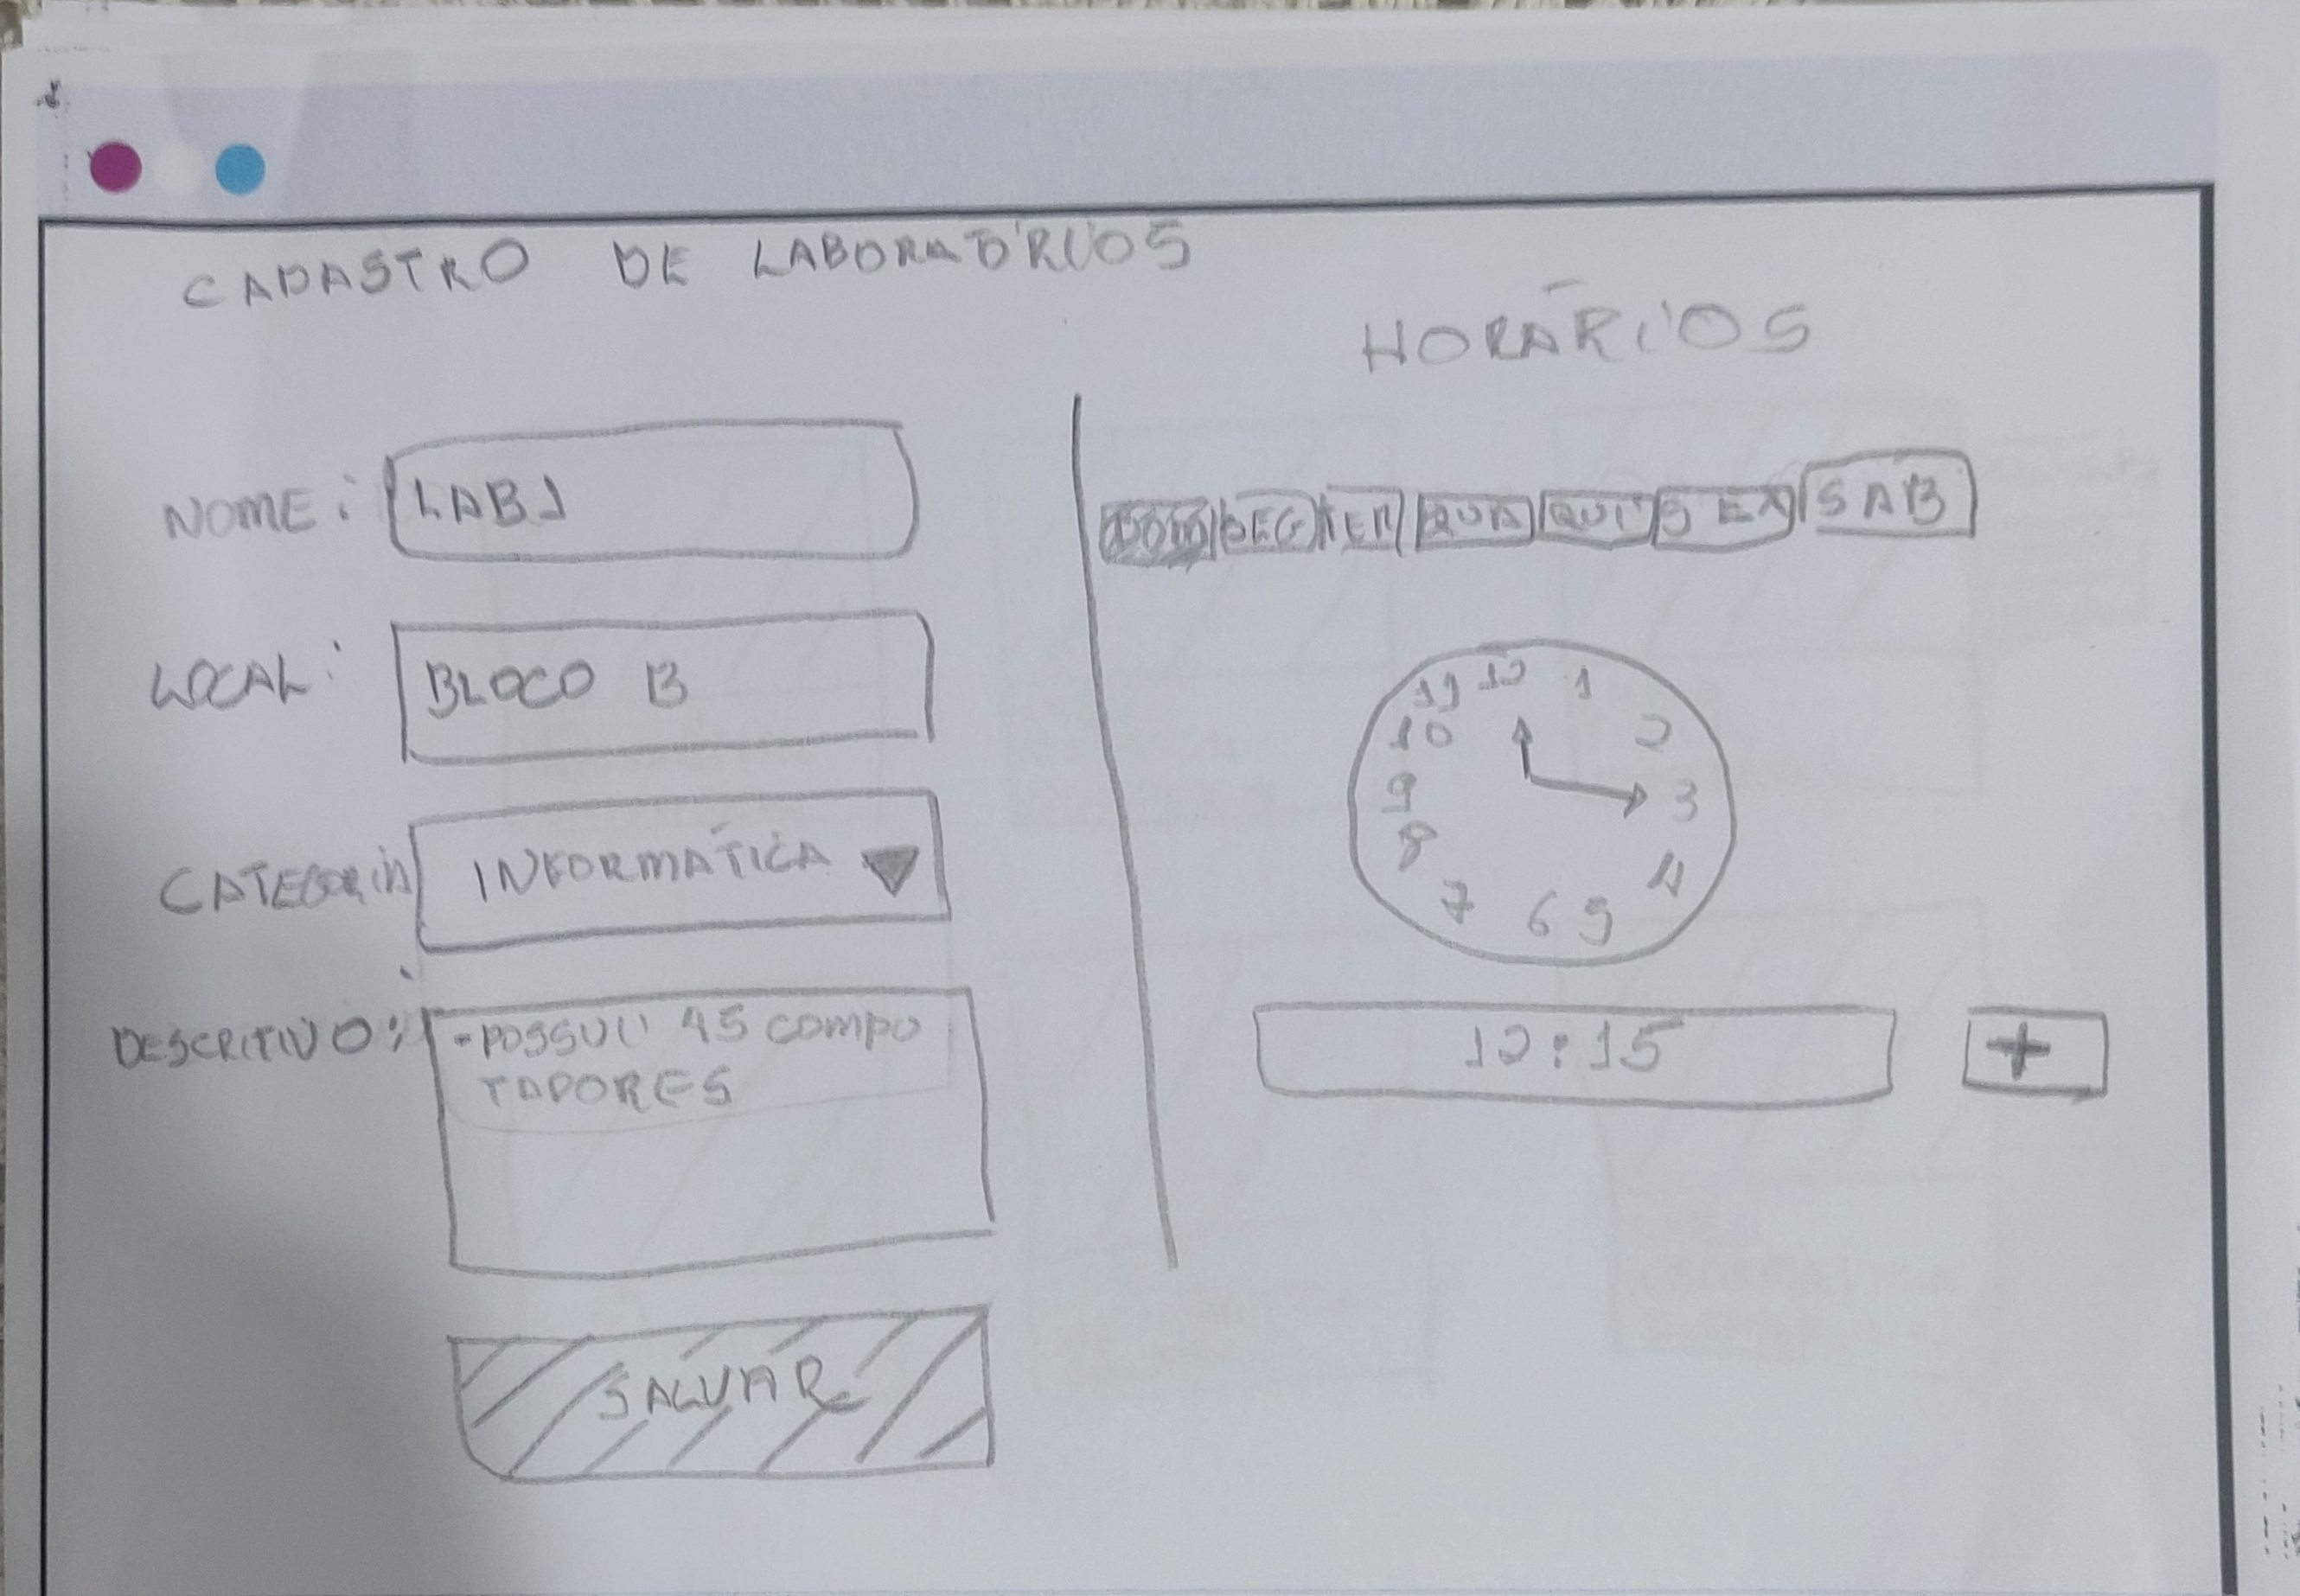 CADASTRO DE LABORATÓRIOS
NOME: LAB1
LOCAL: BLOCO B
CATEGORIA: INFORMÁTICA
DESCRITIVO: - POSSUI 45 COMPO
TADORES
SALVAR
HORÁRIOS
DOM SEG TER QUA QUI SEX SAB
11 12 1
10 2
9 3
8 4
7 6 5
12:15 +